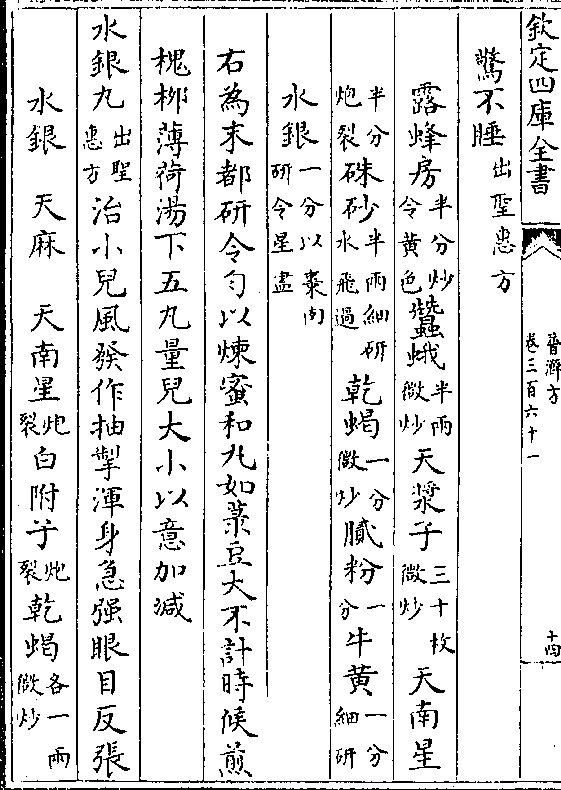 欽定四庫全書
普濟方
卷三百六十一
十四
驚不睡出聖惠方
露蜂房半分炒令黄色蠶蛾半兩微炒天漿子三十枚微炒天南星
半分炮裂硃砂半兩細研水飛過乾蝎一分微炒膩粉一分牛黄一分細研
水銀一分以棗肉研令星盡
右為末都研令勻以煉蜜和丸如菉豆大不計時候煎
槐柳薄荷湯下五丸量兒大小以意加減
水銀丸出聖惠方治小兒風發作抽掣渾身急强眼目反張
水銀　天麻　天南星炮裂白附子炮裂乾蝎各一兩微炒